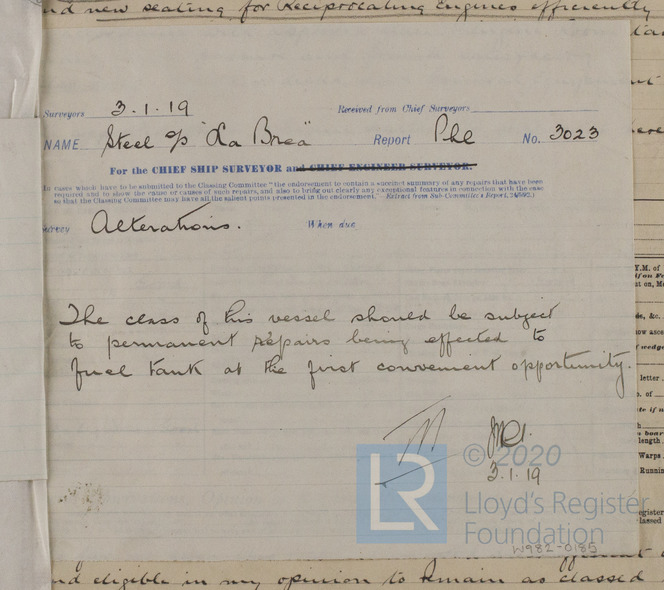 nd new seating for Reciprocating Engines efficiently
Surveyors 3.1.19 Received from Chief Surveyors
NAME Steel s/s "La Brea" Report Phl No. 3023
For the CHIEF SHIP SURVEYOR and CHIEF ENGINEER SURVEYOR.
In cases which have to be submitted to the Classing Committee "the endorsement to contain a succinct summary of any repairs that have been
required and to show the cause or causes of such repairs, and also to bring out clearly any exceptional features in connection with the case
so that the Classing Committee may have all the salient points presented in the endorsement."—Extract from Sub-Committee's Report,
urvey Alterations. When due
The class of this vessel should be subject
to permanent repairs being effected to
fuel tank at the first convenient opportunity.
3.1.19
LR © 2020
Lloyd's Register
Foundation
W982-0185
nd eligible in my opinion to remain as classed
Y.M. of
letter
b. of
length
Warps
Runnin
egister
lassed